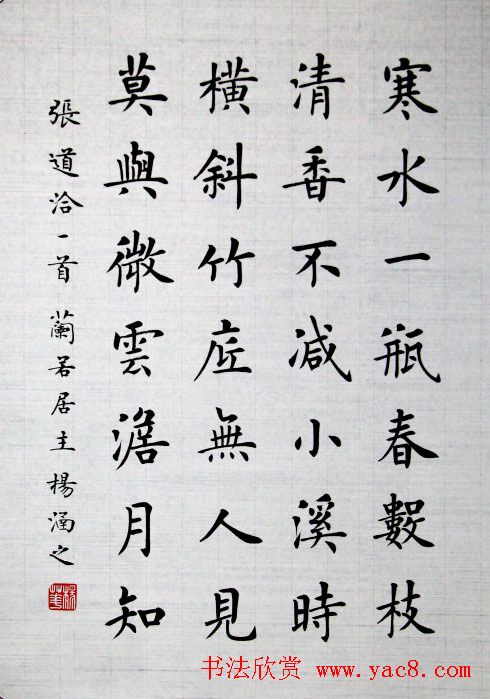 寒水一瓶春數枝
清香不減小溪時
橫斜竹底無人見
莫與微雲澹月知
張道洽一首 蘭若居主楊涵之
书法欣赏 www.yac8.com